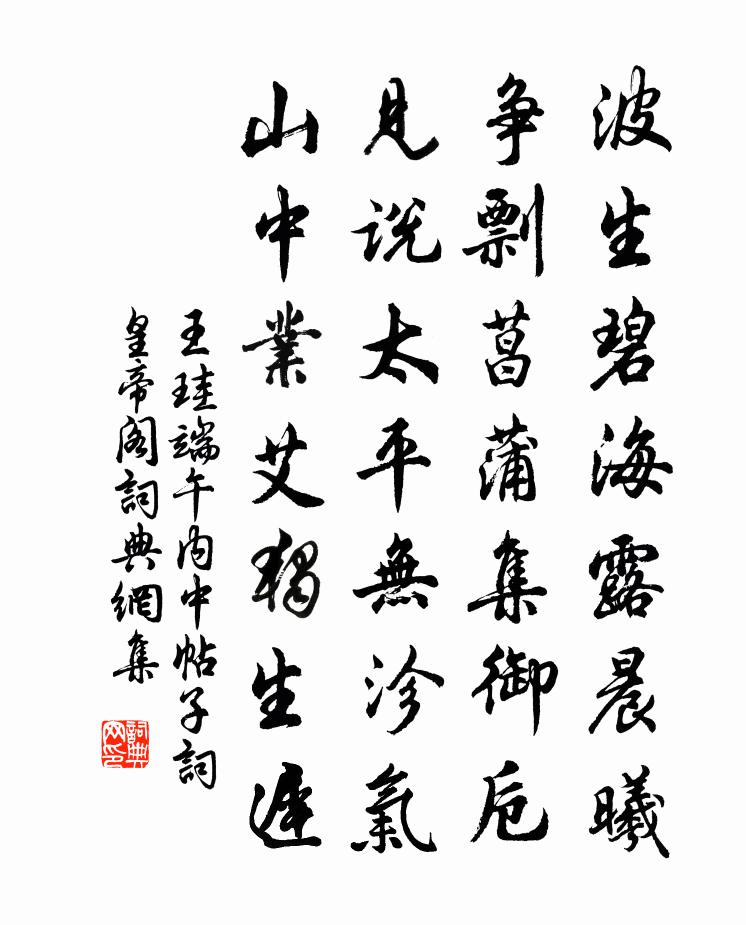 波生碧海露晨曦
爭剽菖蒲集御卮
見説太平無沴氣
山中業艾獨生遲
王珪端午內中帖子詞
皇帝閣詞典網集
詞典網印